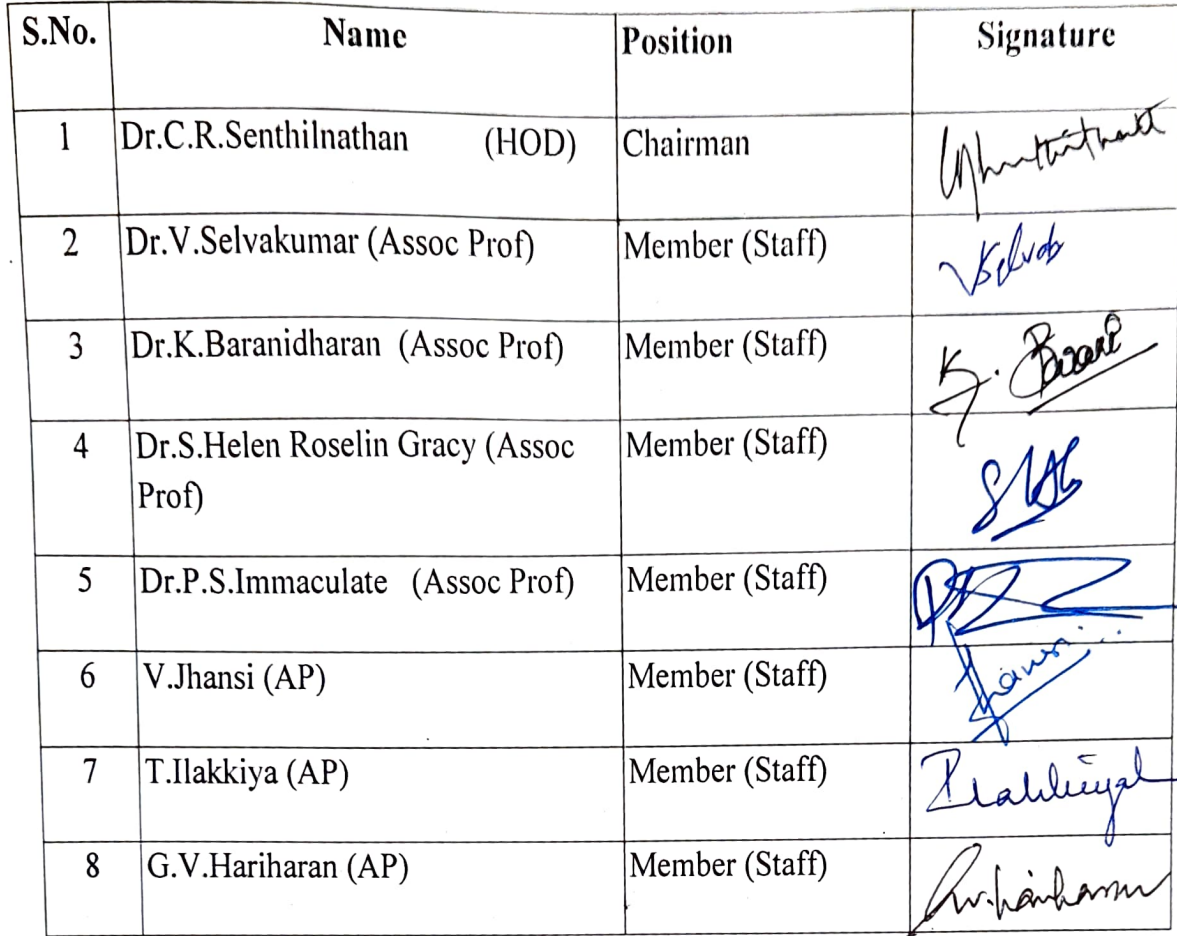 S.No. Name Position Signature
1 Dr.C.R.Senthilnathan (HOD) Chairman
2 Dr.V.Selvakumar (Assoc Prof) Member (Staff)
3 Dr.K.Baranidharan (Assoc Prof) Member (Staff) K. Barani
4 Dr.S.Helen Roselin Gracy (Assoc Member (Staff)
Prof)
5 Dr.P.S.Immaculate (Assoc Prof) Member (Staff)
6 V.Jhansi (AP) Member (Staff) Jhansi
7 T.Ilakkiya (AP) Member (Staff)
8 G.V.Hariharan (AP) Member (Staff)